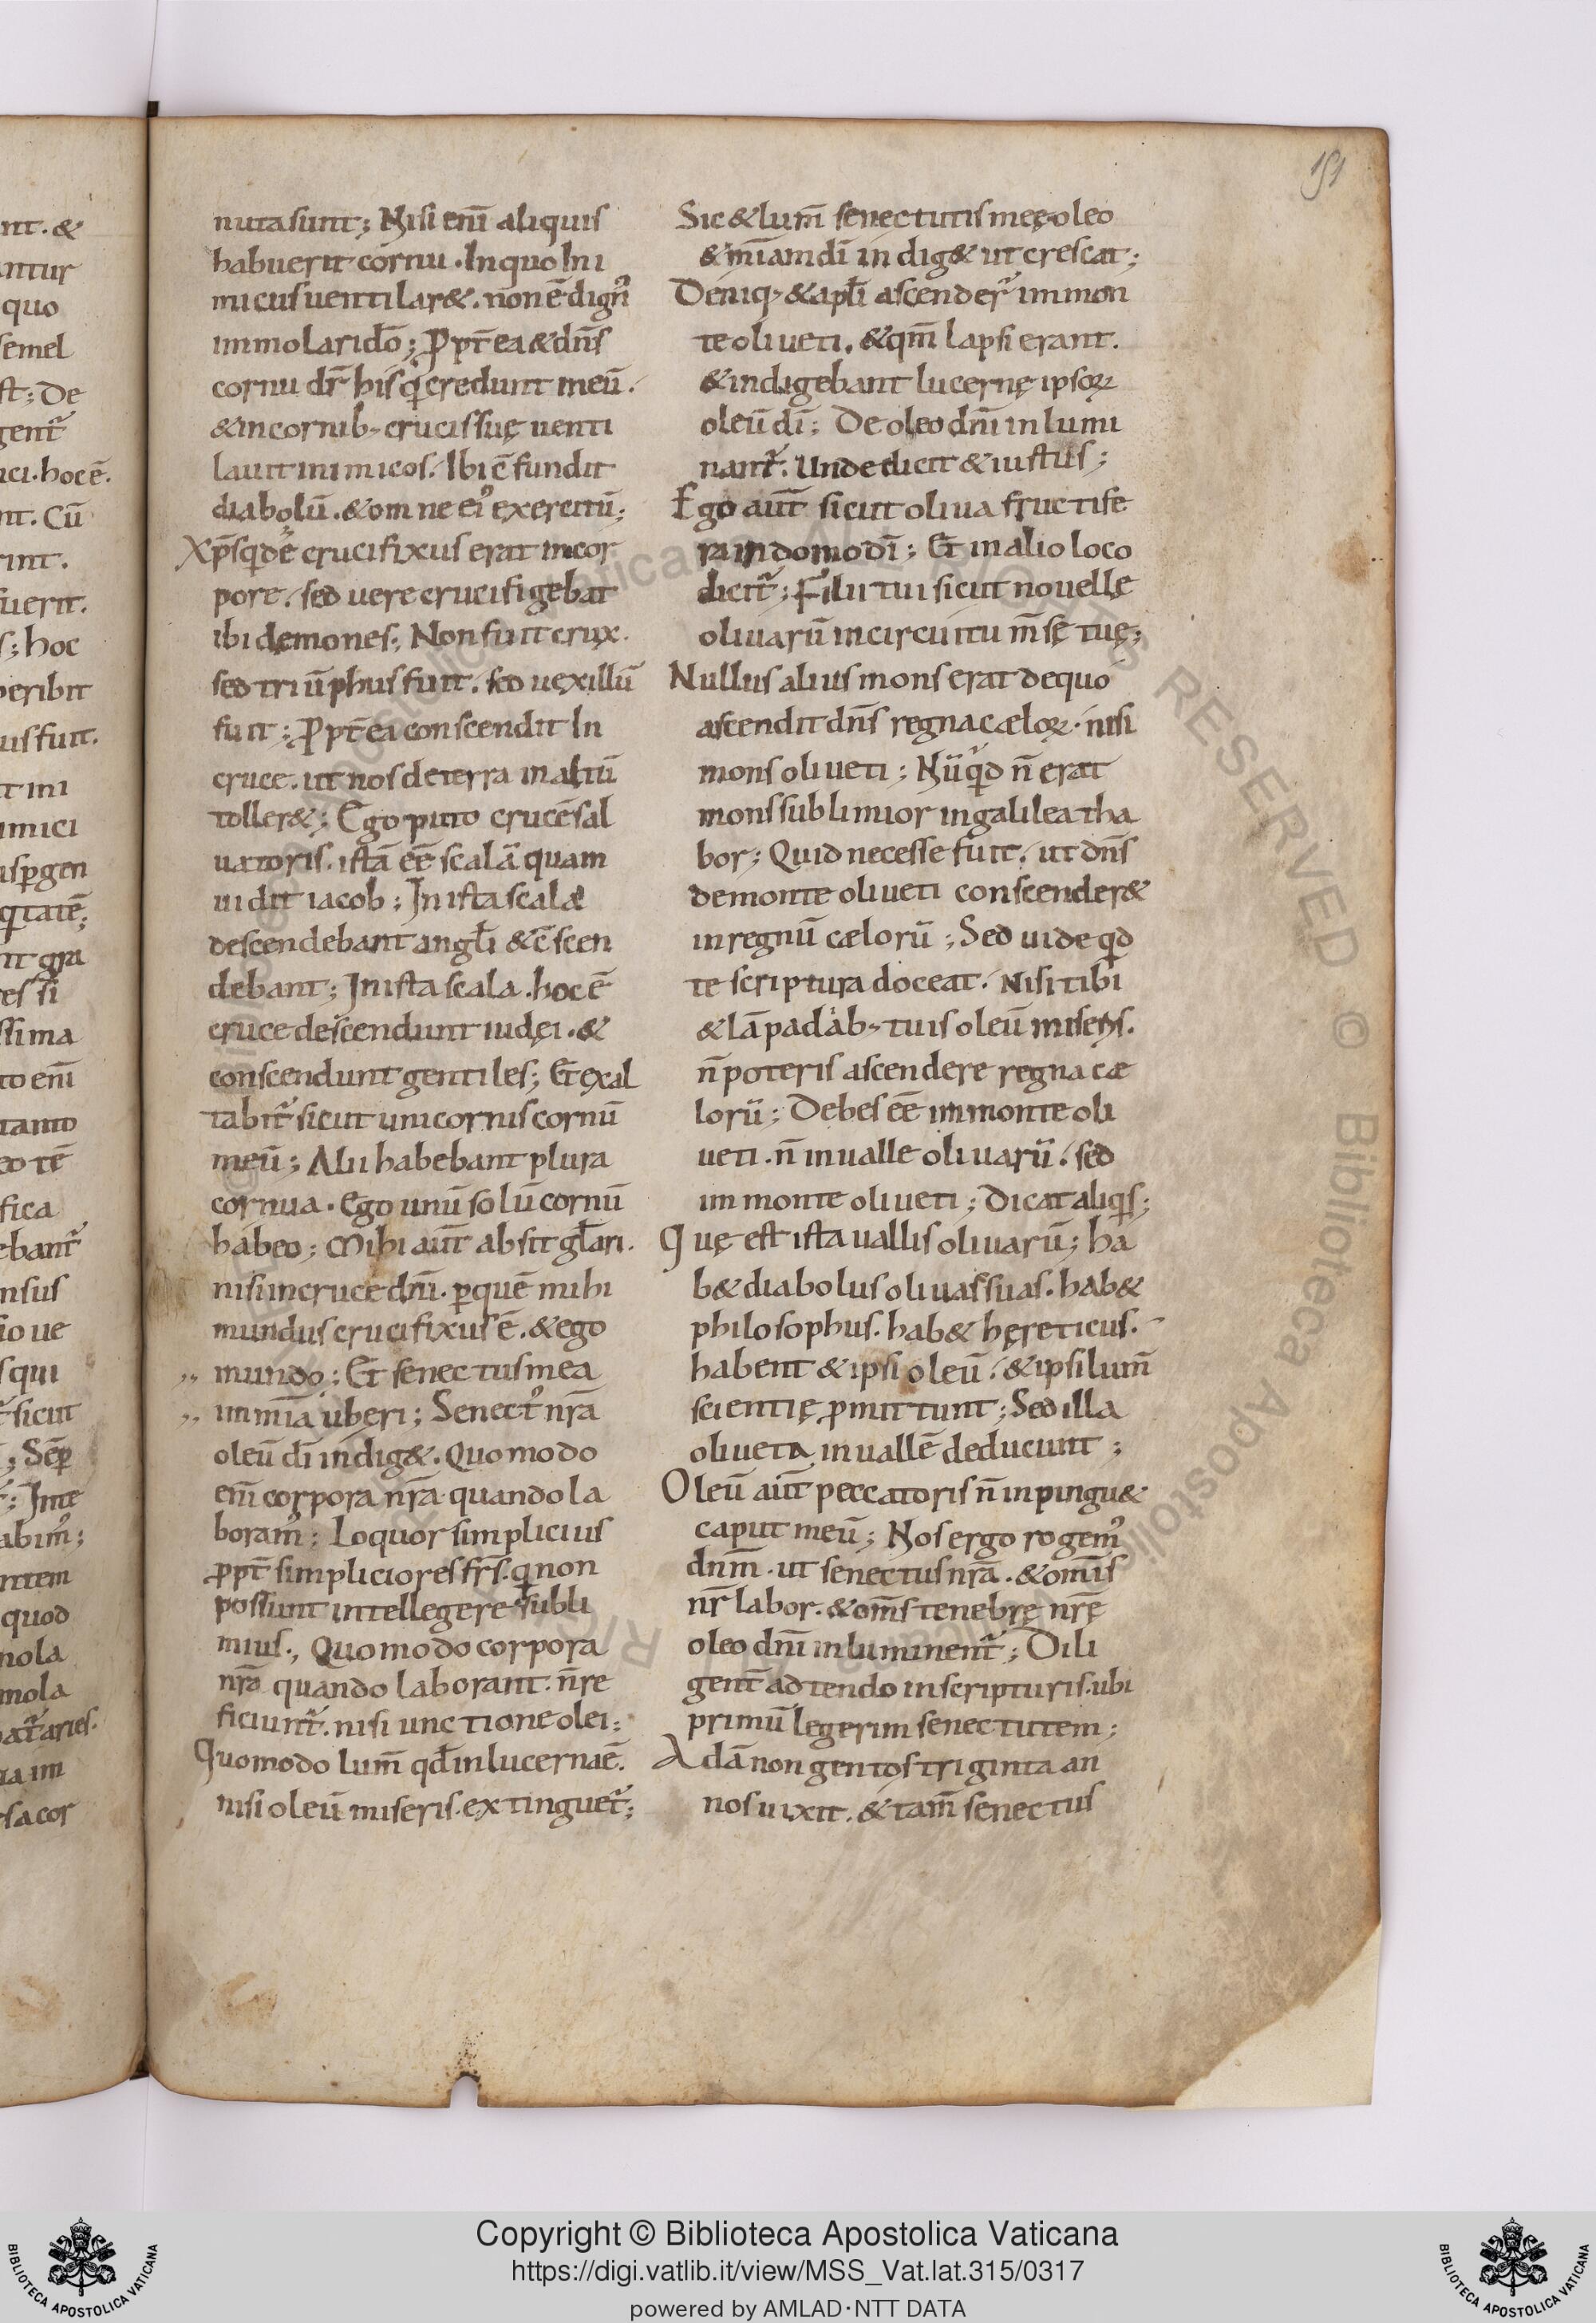 151
nt. &
ntur
quo
semel
st; De
gent᷑
ici. hoc ē.
nt. Cū
rint.
fuerit.
s; hoc
peribit
uis fuit.
t ini
imici
us pgen
q̇ taiē;
nt gra
res si
ssima
to enī
tanto
eo tē
fica
ebant᷑
nsus
io ue
s qui
sicut
; Sēp
; Inte
abim᷒;
ntem
quod
mola
mola
at᷑ aries.
ia im
rsa cor
nuta sunt; Nisi enī aliquis
habuerit cornu. In quo Ini
micus uentilar&. non ē dign᷒
immolari dō; Ppt̄ea & dn̄s
cornu dr̄ his q̇ credunt meū.
& in cornib; crucis suę uenti
lauit inimicos. Ibi c̄fundit
diabolū. & omne ei᷒ exercitū;
Xp̄s qdē crucifixus erat in cor
pore. sed uere crucifigebat
ibi dęmones; Non fuit crux.
sed triūphus fuit. sed uexillū
fuit; Ppt̄ea conscendit In
cruce. ut nos de terra in altū
toller&; Ego puto crucē sal
uatoris. istā eē scalā quam
uidit iacob; In ista scala
descendebant angl̄i & c̄scen
debant; In ista scala. hoc ē
cruce descendunt iudęi. &
conscendunt gentiles; Et exal
tabit᷑ sicut unicornis cornū
meū; Alii habebant plura
cornua. Ego unū solū cornū
habeo; Mihi aūt absit gl̄ari.
nisi in cruce dn̄i. p quē mihi
mundus crucifixus ē. & ego
,, mundo; Et senectus mea
,, im mīa uberi; Senect᷒ nr̄a
oleū dī indig&. Quomodo
enī corpora nr̄a quando la
boram᷒; Loquor simplicius
ppt̄ simpliciores fr̄s. q̇ non
possunt intellegere subli
mius., Quomodo corpora
nr̄a quando laborant. n̄ re
ficiunt᷑. nisi unctione olei;
Quomodo lum̄ qd̄ in lucerna ē.
nisi oleū miseris. extinguet᷑;
Sic & lum̄ senectutis meę oleo
& mīam dī indig& ut crescat;
Deniq; & apl̄i ascender᷑ im mon
te oliueti, & qm̄ lapsi erant.
& indigebant lucernę ipsoꝝ
oleū dī; De oleo dn̄i inlumi
nant᷑. Unde dicit & iustus;
Ego aūt sicut oliua fructife
ra in domo dī; Et in alio loco
dicit᷑; Filii tui sicut nouellę
oliuarū in circuitu m̄sę tuę;
Nullus alius mons erat de quo
ascendit dn̄s regna cæloꝝ. nisi
mons oliueti; Nūq̇d n̄ erat
mons sublimior in galilea tha
bor; Quid necesse fuit. ut dn̄s
de monte oliueti conscender&
in regnū cælorū; Sed uide q̇d
te scriptura doceat. Nisi tibi
& lāpadab; tuis oleū miseris.
n̄ poteris ascendere regna cæ
lorū; Debes eē im monte oli
ueti. n̄ in ualle oliuarū. sed
im monte oliueti; Dicat aliq̇s;
Quę est ista uallis oliuarū; ha
b& diabolus oliuas suas. hab&
philosophus. hab& hęreticus.
habent & ipsi oleū. & ipsi lum̄
scientię pmittunt; Sed illa
oliueta in uallē deducunt;
Oleū aūt peccatoris n̄ inpingu&
caput meū; Nos ergo rogem᷒
dnm̄. ut senectus nr̄a. & omīs
nr̄ labor. & oms̄ tenebrę nr̄ę
oleo dn̄i inluminent᷑; Dili
gent̄ adtendo in scripturis. ubi
primū legerim senectutem;
Adā nongentos triginta an
nos uixit. & tam̄ senectus
Copyright © Biblioteca Apostolica Vaticana
https://digi.vatlib.it/view/MSS_Vat.lat.315/0317
powered by AMLAD·NTT DATA
BIBLIOTECA APOSTOLICA VATICANA
BIBLIOTECA APOSTOLICA VATICANA